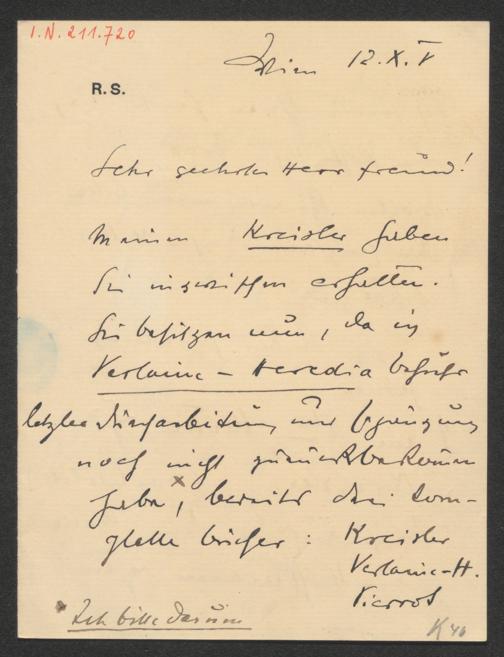 I.N. 211.720
Wien 12.X.V
R.S.
Sehr geehrter Herr Freund!
Meinen Kreisler haben
Sie inzwischen erhalten.
Sie besitzen nun, da ich
Verlaine - Heredia behufs
letzter Durcharbeitung und Ergänzung
noch nicht zurückbekommen
habe, bereits drei kom-
plette Bücher: Kreisler
Verlaine-H.
Pierrot
Ich bitte darum